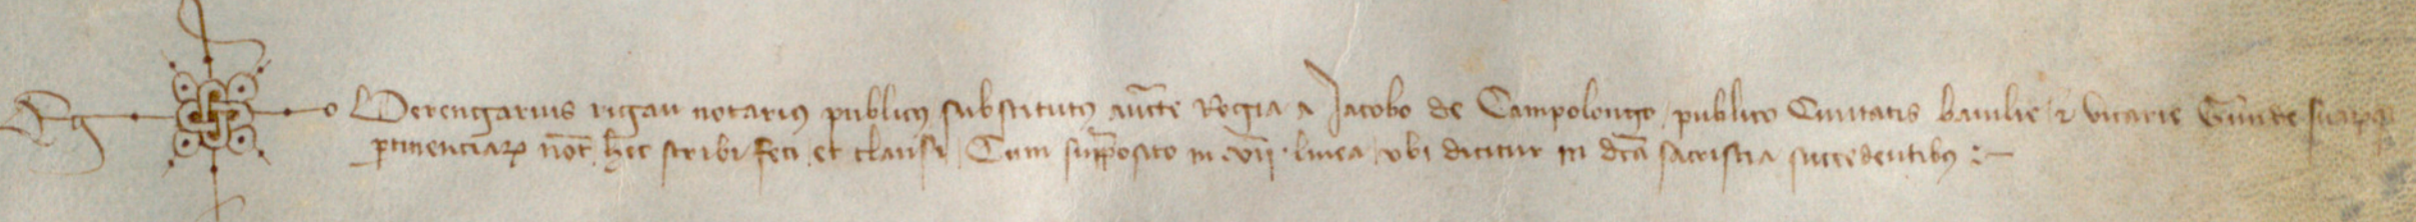 Eg o Berengarius rigau notarius publicus substitutus aucte Regia a Jacobo de Campolongo publico Civitatis baiulie et vicarie Gerunde suarumque
ptinenciarum not hec scribi feci et clausi Cum supposito in .vii. linea ubi dicitur in dca sacristia succedentibus :~